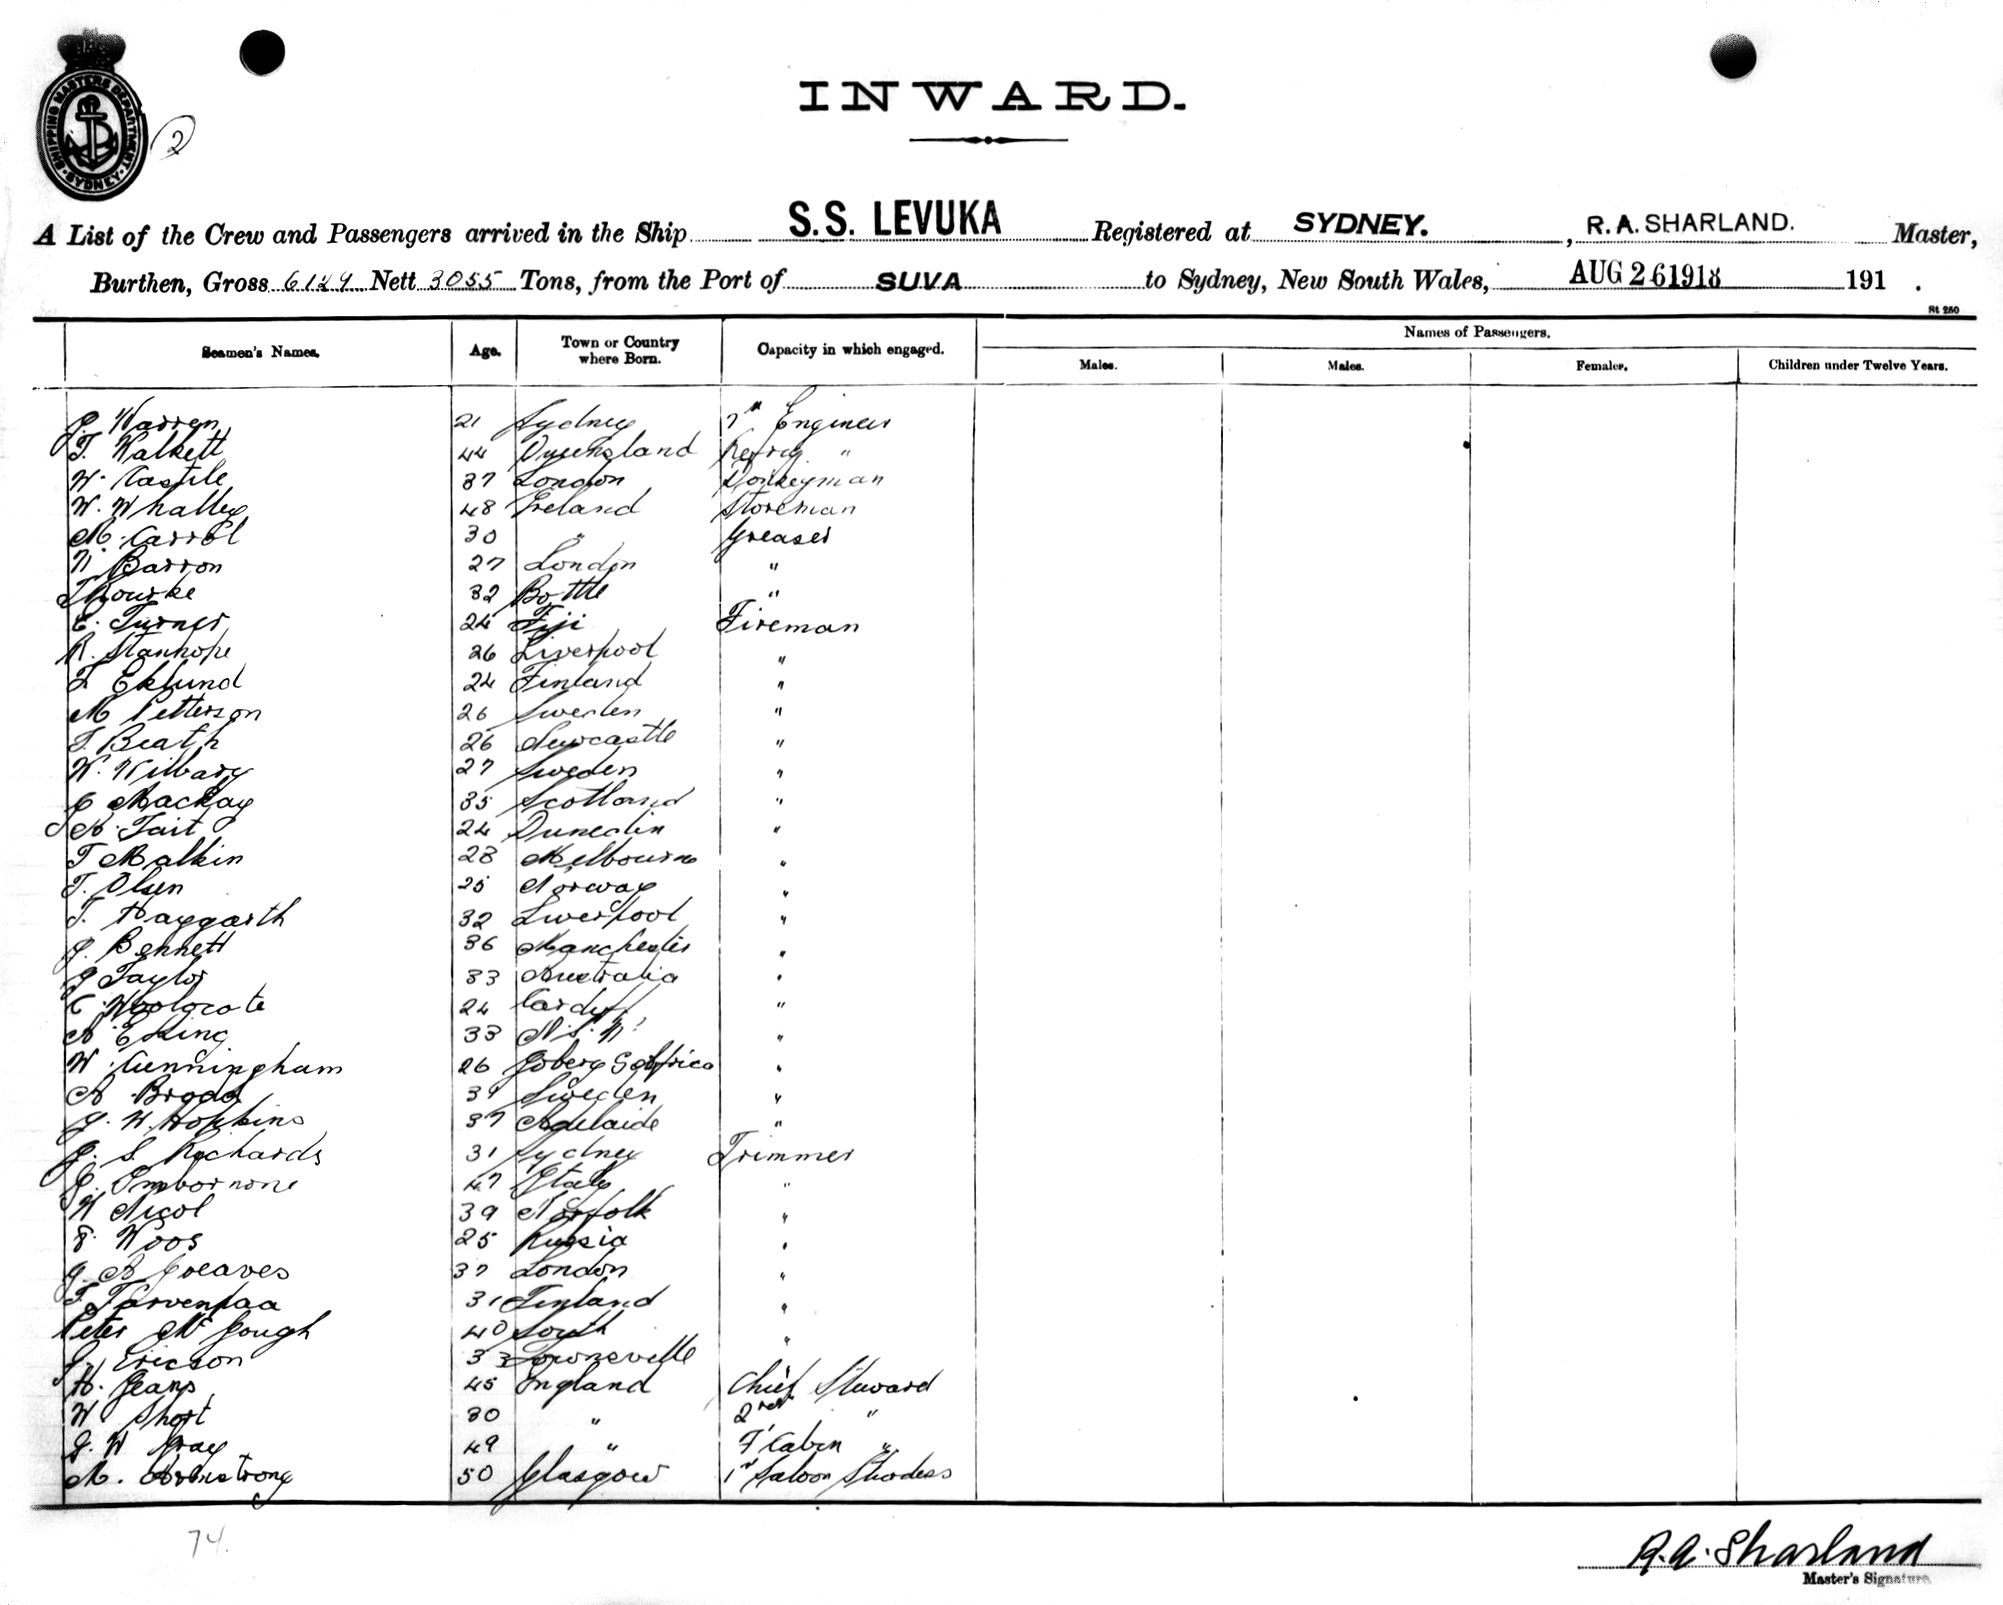 SHIPPING MASTERS DEPARTMENT
SYDNEY
2
INWARD.
A List of the Crew and Passengers arrived in the Ship S.S. LEVUKA Registered at SYDNEY. , R.A. SHARLAND. Master,
Burthen, Gross 6129 Nett 3055 Tons, from the Port of SUVA to Sydney, New South Wales, AUG 26 1918 191 .
St 250
Seamen's Names. Age. Town or Country where Born. Capacity in which engaged. Names of Passengers.
Males. Males. Females. Children under Twelve Years.
J. Warren 21 Sydney 7th Engineer
T. Walkett 44 Queensland Refrig "
W. Castile 37 London Donkeyman
W. Whalley 48 Ireland Storeman
M. Carrol 30 " Greaser
N. Barron 27 London "
T Rourke 32 Bottle "
E. Turner 24 Fiji Fireman
R. Stanhope 26 Liverpool "
Eklund 24 Finland "
M Petterson 26 Sweden "
T. Beath 26 Newcastle "
W. Wilbary 27 Sweden "
C Mackay 35 Scotland "
A. Tait 24 Dunedin "
T Malkin 28 Melbourne "
T. Olsen 25 Norway "
T. Haygarth 32 Liverpool "
J. Bennett 36 Manchester "
J Taylor 33 Australia "
C. Woolocote 24 Cardiff "
A E King 33 N.S.W. "
W. Cunningham 26 Joberg S Africa "
A Broda Sweden "
J. W. Hopkins 37 Adelaide "
J. S. Richards 31 Sydney Trimmer
C. Imbornone 47 Italy "
W Nicol 39 Norfolk "
Woos 25 Russia "
J. A Greaves 37 London "
T. Tarvenpaa 31 Finland "
Peter McGough 40 South "
J. Ericson 33 Townsville
H. Jeans 45 England Chief Steward
W Short 30 " 2nd "
J. W Gray 49 " F' Cabin "
M. Armstrong 50 Glasgow 1st Saloon Stwdess
74.
R.A. Sharland
Master's Signature